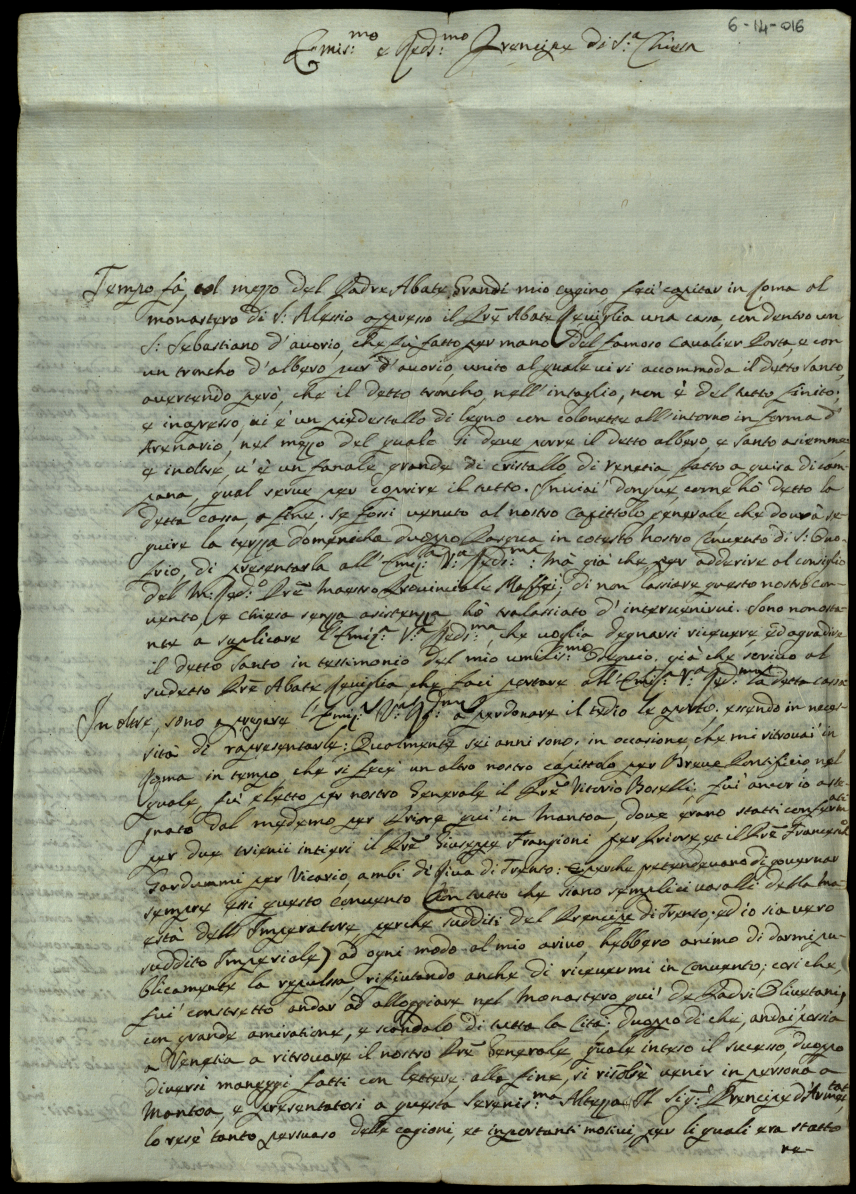 6-14-016
Emin.mo e Red.mo Prencipe di S.a Chiesa
Tempo fà, col mezzo del Padre Abate Grandi mio cugino feci capitar in Roma al
monastero di S: Alessio appresso il Pre Abate Reviglia una cassa, con dentro un
S: Sebastiano d'auorio, che fù fatto per mano del famoso Caualier Porta, e con
un troncho d'albero pur d'auorio, unito al quale ui si accommoda il detto santo,
auertendo però, che il detto troncho, nell'intaglio, non è del tutto finito;
e inapresso, ui è un piedestallo di legno con colonette all'intorno in forma d'
Arenario, nel mezzo del quale si deue porre il detto albero, e santo asiemme;
e inoltre u'è un fanale grande di cristallo di Venetia fatto a guisa di cam-
pana, qual serue per coprire il tutto. Inuiai donque come hò detto la
detta cassa, a fine, se fossi uenuto al nostro Capittolo generale, che dourà se-
guire la terza domenicha duoppo Pasqua in cotesto nostro Conuento di S: Ono-
frio, di presentarla all'Emi:za V:a Red:ma: mà già che per adderire al consiglio
del M: Red:o Pre Maestro Prouinciale Maffei, di non lassiare questo nostro con-
uento, e chiesa senza asistenza hò tralassiato d'interuenirui. Sono nonosta-
nte a suplicare l'Emi:za V:a Red:ma, che uoglia degnarsi riceuere ed agradire
il detto santo in testimonio del mio umiliss:mo ossequio, già che scriuo al
sudetto Pre Abate Reviglia che faci portare all'Emi:za V:a Red:ma la detta cassa
In oltre, sono a pregare l'Emi:za V:a R:ma a perdonare il tedio le aporto, essendo in neces-
sità di rapresentarle: Qualmente sei anni sono, in occasione, che mi ritrouai in
Roma in tempo, che si fece un altro nostro capitolo per Breue Pontificio, nel
quale, fù eletto per nostro Generale il Pre Vitorio Borelli; fui ancor io asse-
gnato dal medemo per Priore quì in Mantoa, doue erano statti confirmati
per due trienii intieri il Pre Giuseppe Frangioni per Priore et il Pre Francesco
Gardummi per Vicario, ambi di Riua di Trento: e perche pretendeuano di gouernar
sempre essi questo conuento (con tutto che siano semplici uasalli della Ma-
està dell'Imperatore, perche sudditi del Prencipe di Trento, ed io sia uero
suddito Imperiale) ad ogni modo al mio ariuo, hebbero animo di darmi pu-
blicamente la repulsa, rifiutando anche di riceuermi in Conuento; così che
fui constretto andar ad alloggiare nel monastero quì de Padri Oliuetani,
con grande amiratione, e scandalo di tutta la Cità: duoppo di che, andai possia
a Venetia a ritrouare il nostro Pre Generale, quale inteso il sucesso, duoppo
diuersi maneggi fatti con lettere: alla fine, si risolsè uenir in persona a
Mantoa, e presentatosi a questa Serenis:ma Altezza il Sig:r Prencipe d'Armestat,
lo resè tanto persuaso delle cagioni, et inportanti motiui, per li quali era statto
re-